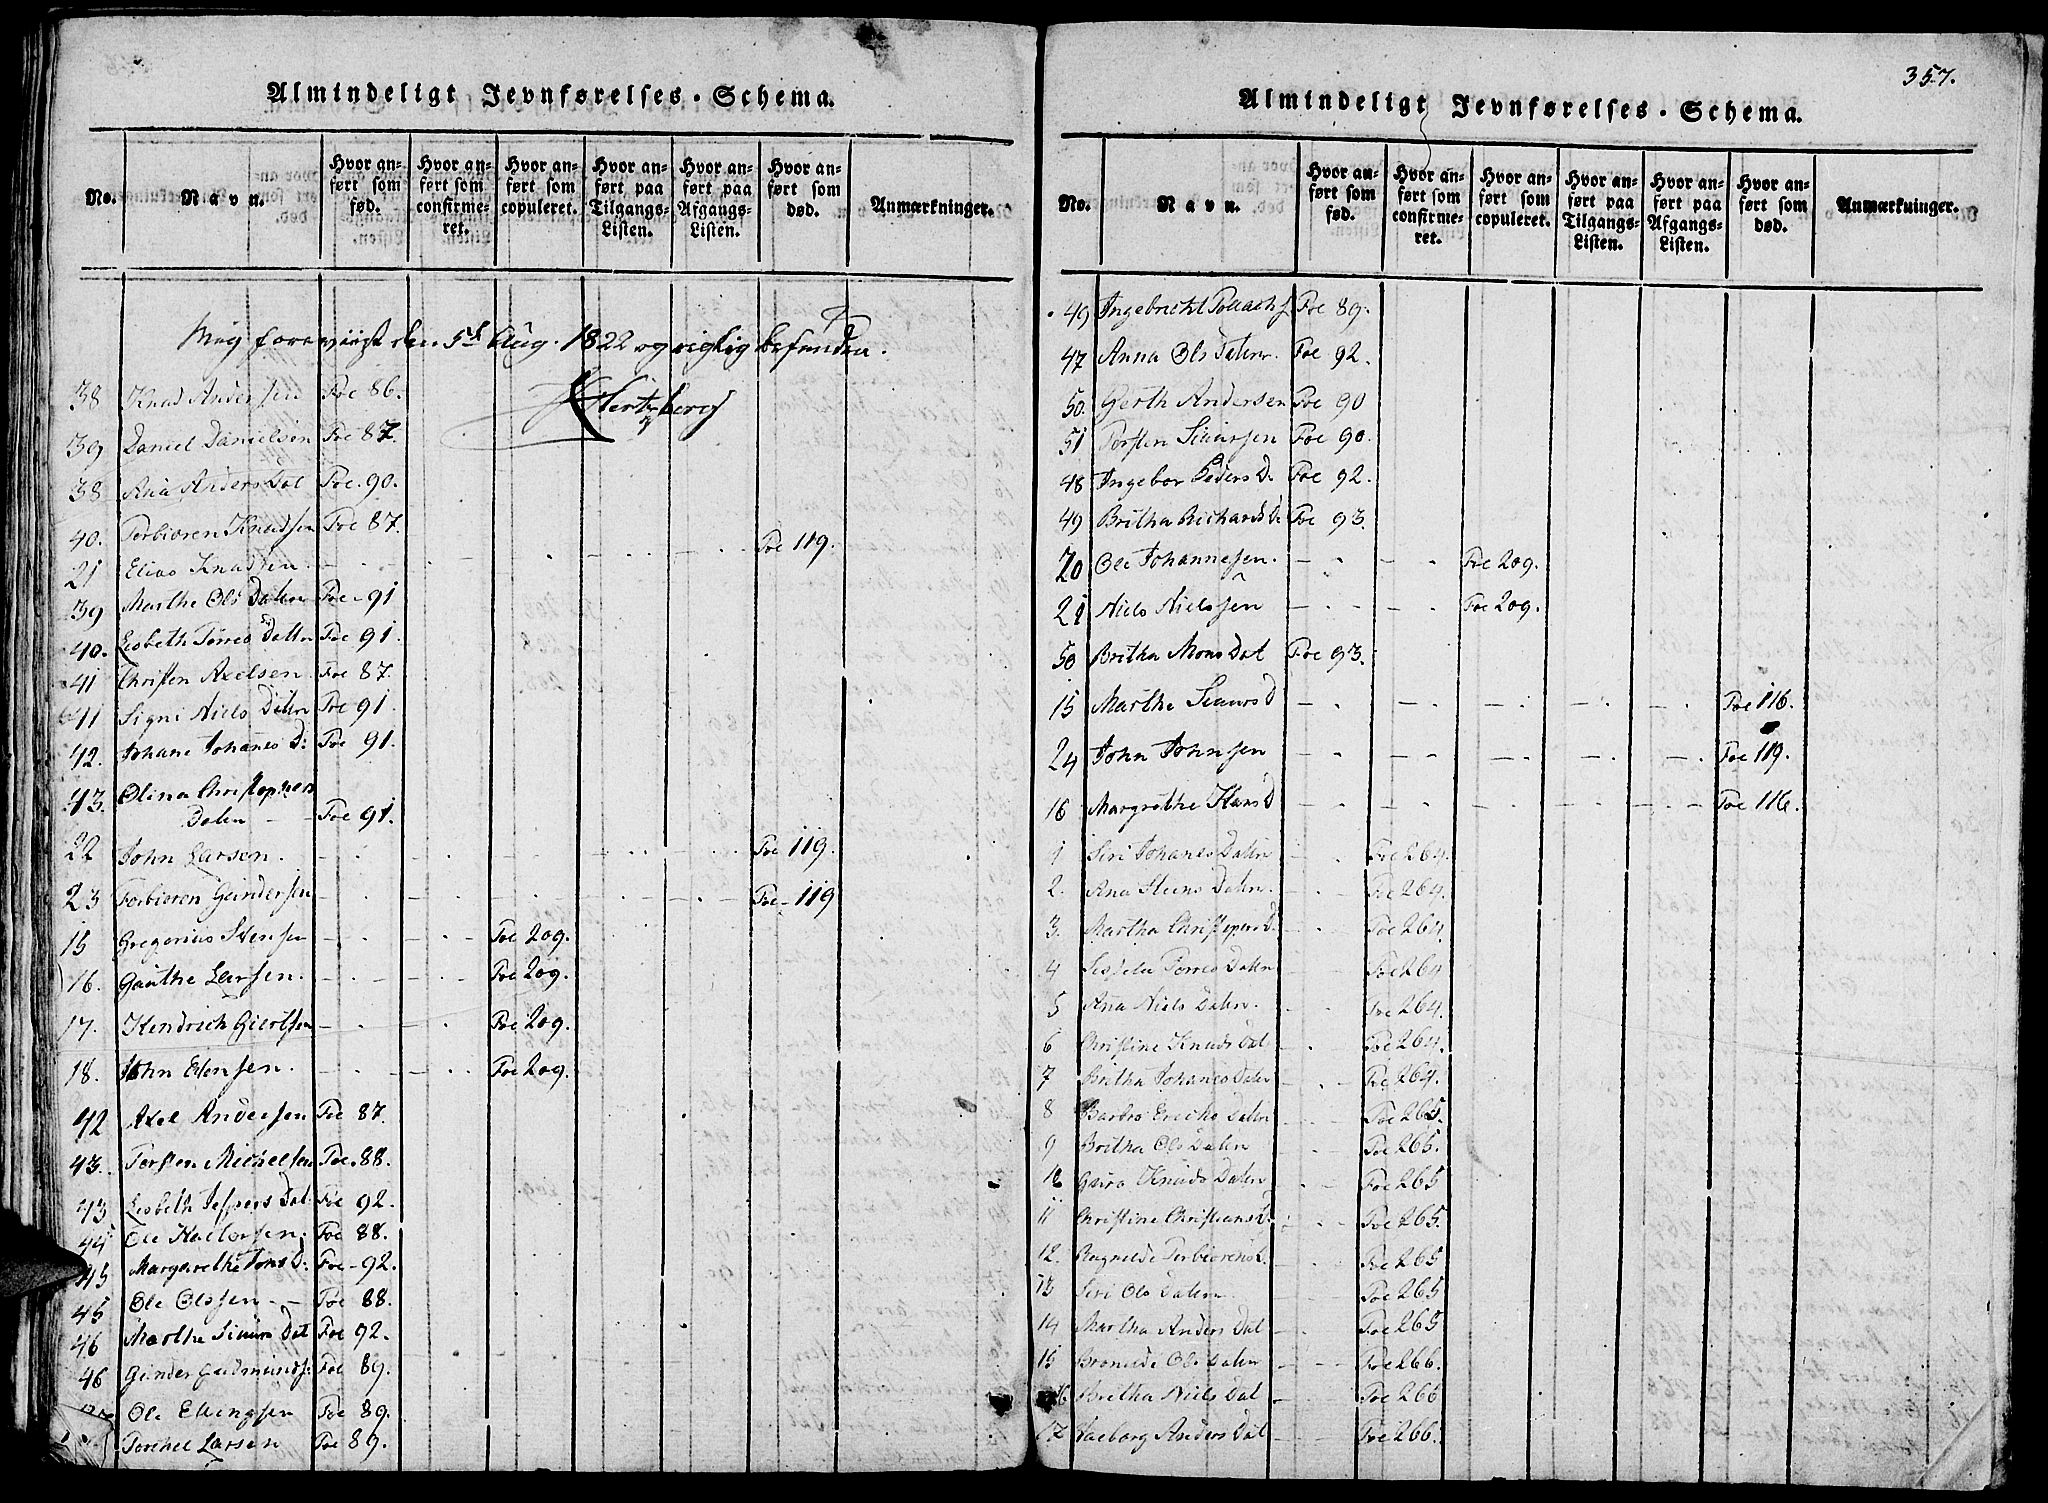 Almindeligt Jevnførelses-Schema.
No. Navn. Hvor anført som fød. Hvor anført som confirmeret. Hvor anført som copuleret. Hvor anført paa Tilgangs-Listen. Hvor anført paa Afgangs-Listen. Hvor anført som død. Anmærkninger.
Mig foreviist den 5t Aug. 1822 og rigtig befunden.
Hertzberg
38 Knud Andersen Foe 86.
39 Daniel Danielsen Foe 87.
38 Ana Anders Dat Foe. 90.
40. Torbioren Knudsen Foe 87.
21 Elias Knudsen - - - - - Foe 119.
39 Marthe Ols Daten Foe - 91
40. Lisbeth Torres Datter Foe 91.
41 Christen Axelsen Foe 87.
41 Signi Niels Daten Foe 91.
42. Johane Johanes D: Foe 91.
43. Olina Christophers
Daten - Foe 91.
22 John Larsen. - - - - - Foe 119.
23 Torbioren Gundersen - - - - - Foe - 119
15 Gregorius Stensen - - - Foe 209.
16. Gauthe Larsen. - - - Foe 209.
17. Hendrich Giertsen - - - Foe 209.
18. John Ellensen. - - - Foe 209.
42 Axel Andersen Foe 87.
43. Torsten Michelsen Foe. 88.
43 Lisbeth Jeppers Dat. Foe 92.
44 Ole Haldorsen. Foe 88.
45 Margarethe Jons D: Foe - 92.
45 Ole Olssen - - Foe 88.
46 Marthe Siurs Dat Foe 92.
46 Gunder Gudmunds: Foe 89.
Ole Ellingsen Foe 89.
Torchel Larsen Foe 89.
357.
Almindeligt Jevnførelses-Schema.
No. Navn. Hvor anført som fød. Hvor anført som confirmeret. Hvor anført som copuleret. Hvor anført paa Tilgangs-Listen. Hvor anført paa Afgangs-Listen. Hvor anført som død. Anmærkninger.
49 Ingebricht Foe 89.
47 Anna Ols Daten. Foe 92.
50. Gerth Andersen Foe 90
51 Torsten Siurssen Foe 90.
48 Ingebor Peders D. Foe 92.
49 Britha Richards D: Foe 93.
20 Ole Johannesen. - - - Foe 209.
21 Niels Nielssen - - - Foe 209.
50 Britha Mons Dat Foe 93.
15 Marthe Siuurs D - - - - - Foe 116.
24 John Johnsen - - - - - Foe 119.
16 Margrethe Hans D - - - - - Foe 116.
1 Siri Johanes Daten - - Foe 264.
2. Ana Steens Daten. - - Foe 264.
3. Martha Christophers D. - - Foe 264.
4 Torres Daten - - Foe 264
5 Ana Niels Daten. - - Foe 264.
6 Christine Knuds Dat - - Foe 264.
7 Britha Johanes Daten - - Foe 264.
8 Barbro Erichs Daten - - Foe 265.
9 Britha Ols Daten - - Foe 265.
10 Guro Knuds Daten - - Foe 265
11 Christine Christians D. - - Foe 265.
12. Ragnilde Torbiorens D. - - Foe 265
13 Siri Ols Daten - - Foe 265
14 Martha Anders Dat - - Foe 265
15 Bronilde Ols Daten - - Foe 266.
16 Britha Niels Dat - - Foe 266
17 Anders Dat - - Foe 266.